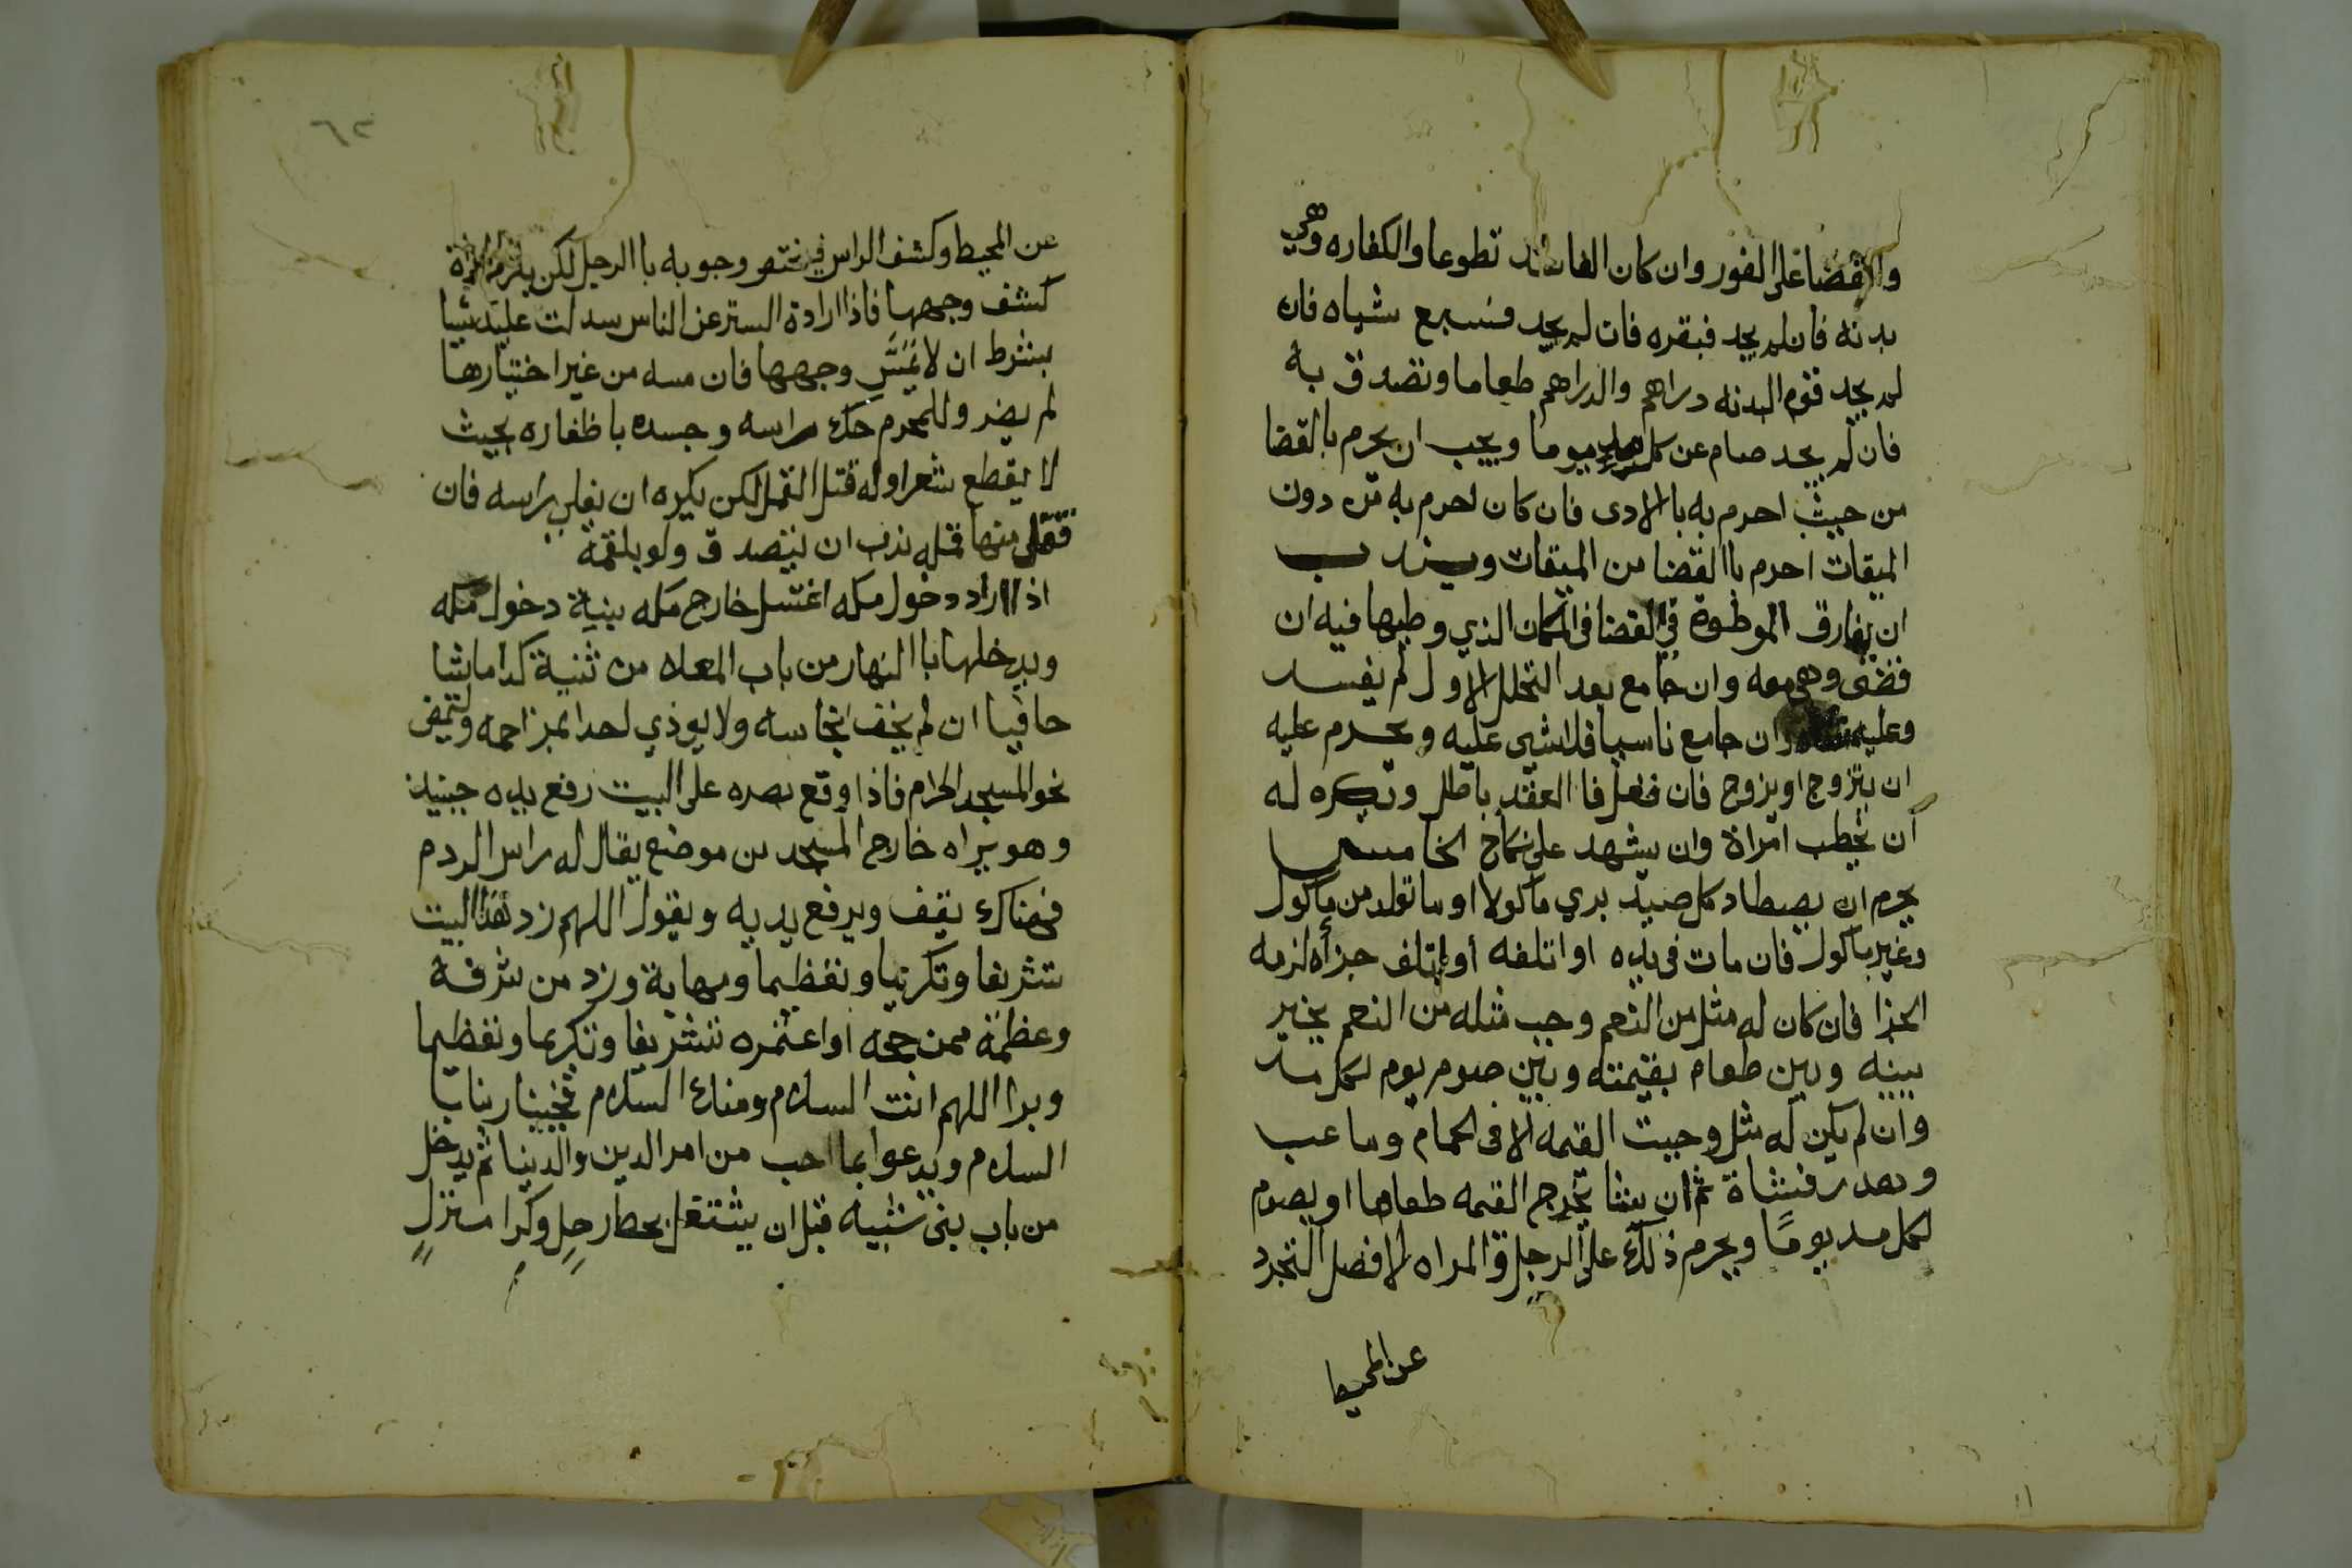 والاقضا على الفور وان كان الفاسد تطوعا والكفاره وهي
بدنه فان لم يجد فبقره فان لم يجد فسبع شياه فان
لم يجد قوم البدنه دراهم والدراهم طعاما وتصدق به
فان لم يجد صام عن كل مد يوما ويجب ان يحرم بالقضا
من حيث احرم به باالادى فان كان احرم به من دون
الميقات احرم باالقضا من الميقات ويندب
ان يفارق الموطوة في القضا فى المكان الذي وطيها فيه ان
قضى وهي معه وان جامع بعد التحلل الاول لم يفسد
وعليه شاه وان جامع ناسيا فلا شي عليه ويحرم عليه
ان يتزوج او يزوج فان فعل فا العقد باطل وتكره له
أن يخطب امراة وان يشهد على نكاح الخامس
يحرم ان يصطاد كل صيد بري ماكولا او ما تولد من ماكول
وغير ماكول فان مات فى يده او اتلفه أو اتلف جزأه لزمه
الجزا فان كان له مثل من النعم وجب مثله من النعم يخير
بينه وبين طعام بقيمته وبين صوم يوم لكل مد
وان لم يكن له مثل وجبت القيمه الا فى الحمام وما عب
وهدر فشاة ثم ان شا يخرج القيمه طعاما او يصوم
لكل مد يومًا ويحرم ذلك على الرجل والمراه الافضل التجرد
عن المحيط
٦٢
عن المحيط وكشف الراس فيختص وجوبه باالرجل لكن يلزم المراة
كشف وجهها فاذا ارادة الستر عن الناس سدلت عليه شيا
بشرط ان لا يَمَسَّ وجهها فان مسه من غير اختيارها
لم يضر وللمحرم حك راسه وجسده باظفاره بحيث
لا يقطع شعرا وله قتل القمل لكن يكره ان يفلي راسه فان
فعل منها قتله ندب ان يتصدق ولو بلقمة
اذا اراد دخول مكه اغتسل خارج مكه بنية دخول مكه
ويدخلها باالنهار من باب المعلاه من ثنية كدا ماشا
حافيا ان لم يخف نجاسه ولا يوذي احدا بمزاحمه وليمض
نحو المسجد الحرام فاذا وقع بصره على البيت رفع يديه حينيذ
وهو يراه خارج المسجد من موضع يقال له راس الردم
فهناك يقف ويرفع يديه ويقول اللهم زد هذا البيت
تشريفا وتكريما وتعظيما ومهابة وزد من شرفه
وعظمه ممن حجه او اعتمره تشريفا وتكريما وتعظيما
وبرا اللهم انت السلام ومنك السلام فحينا ربنا با
السلام ويدعوا بما احب من امر الدين والدينا ثم يدخل
من باب بنى شيبه قبل ان يشتغل بحط رحل وكرا منزل